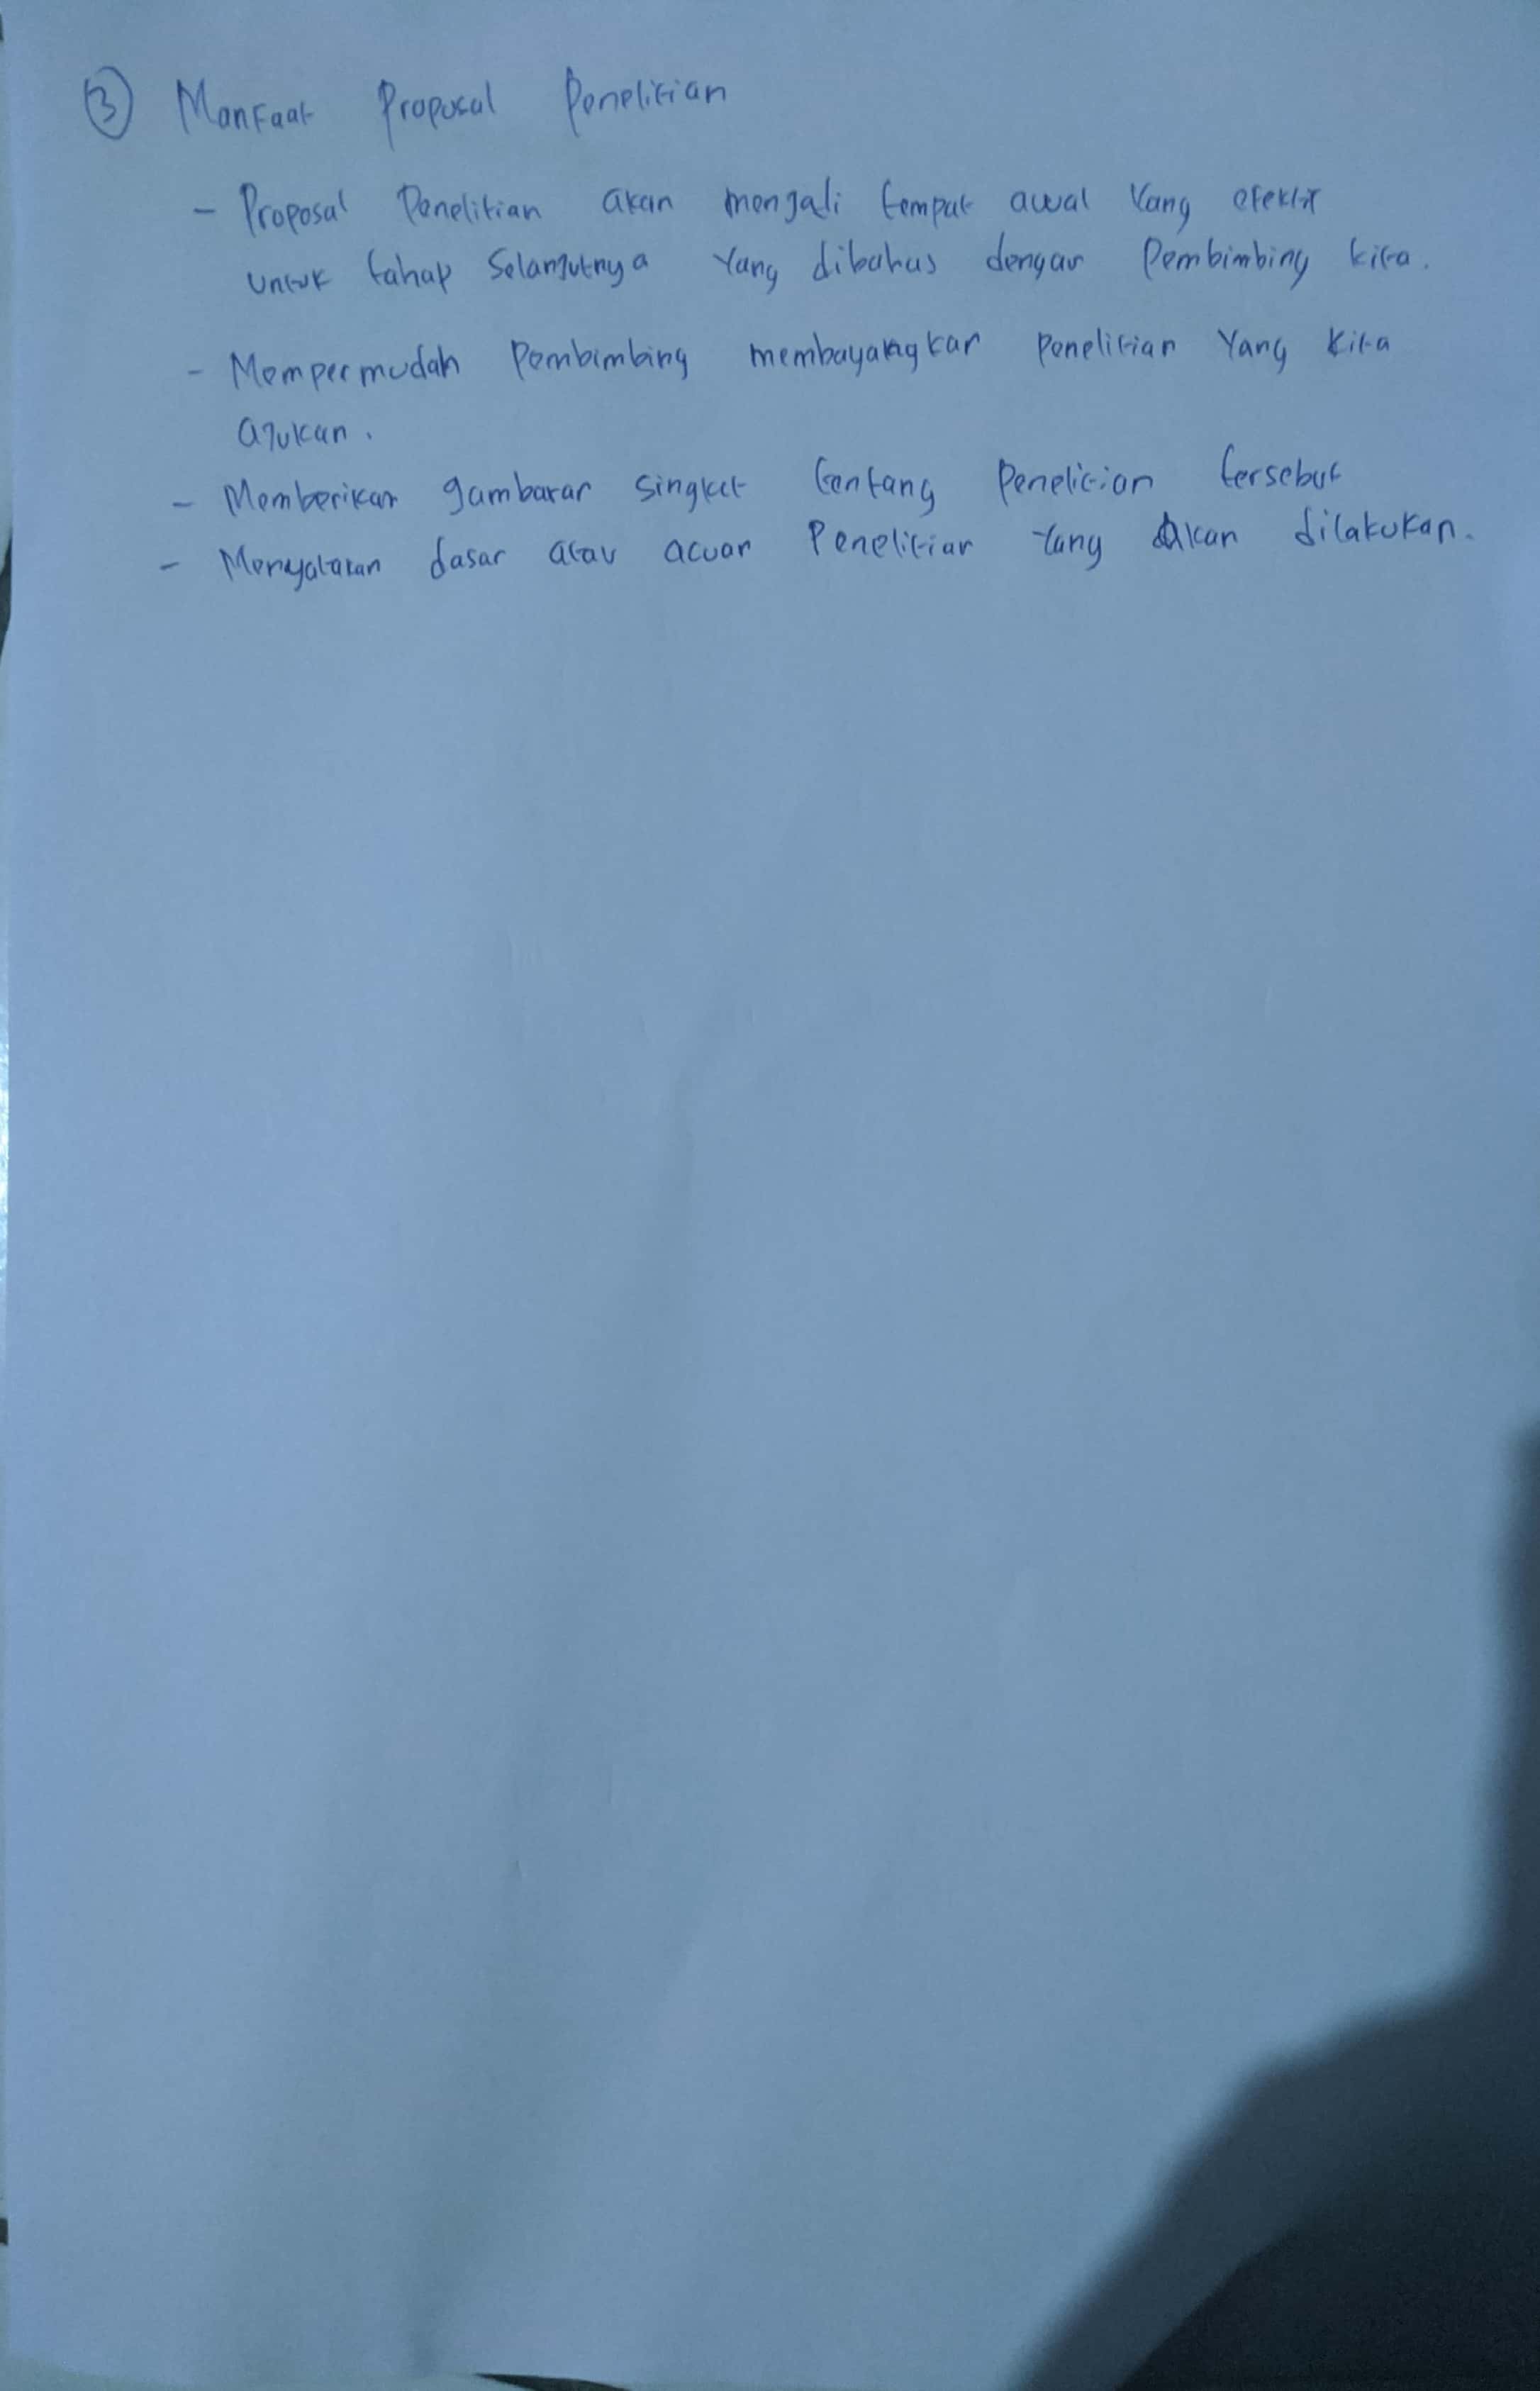 ③ Manfaat Proposal Penelitian
- Proposal Penelitian akan mengali tempat awal yang efektif
untuk tahap Selanjutnya Yang dibahas dengan Pembimbing kita.
- Mempermudah Pembimbing membayangkan Penelitian Yang kita
ajukan.
- Memberikan gambaran singkat tentang Penelitian tersebut
- Menyatakan dasar atau acuan Penelitian Yang Akan dilakukan.